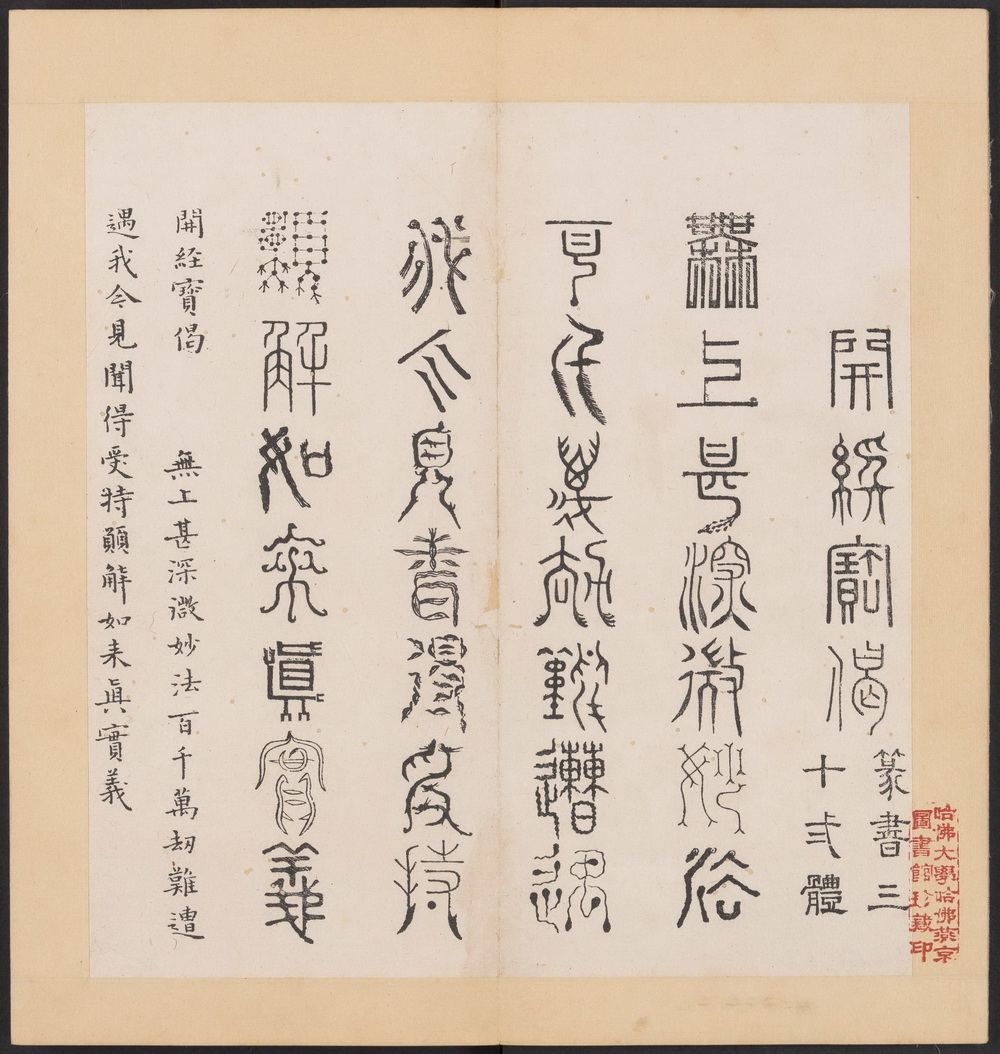 開經寶偈
篆書三
十弍體
無上甚深微妙法
百千萬劫難遭遇
我今見聞得受持
願解如來真實義
開経寶偈
無上甚深微妙法百千萬劫難遭
遇我今見聞得受持願解如来眞實義
哈佛大學哈佛燕京
圖書館珍藏印